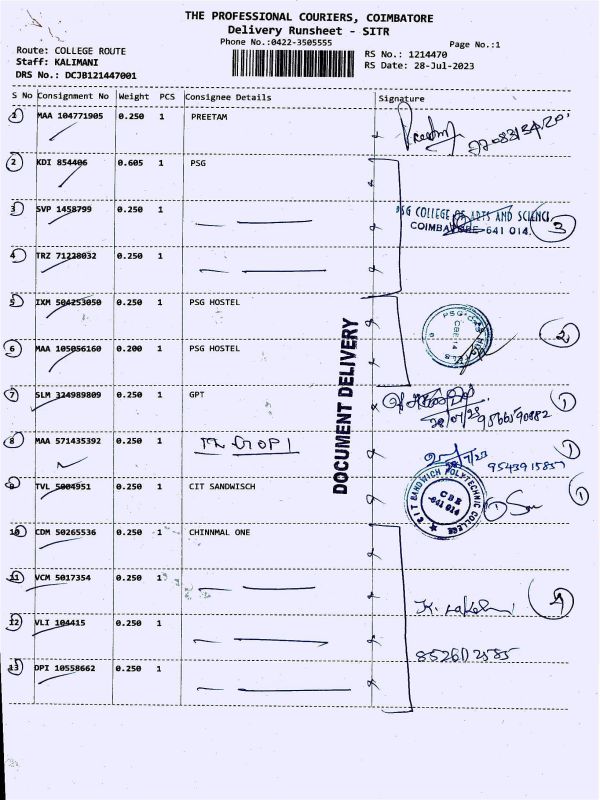 THE PROFESSIONAL COURIERS, COIMBATORE
Delivery Runsheet - SITR
Phone No.:0422-3505555
Page No.:1
Route: COLLEGE ROUTE
Staff: KALIMANI
DRS No.: DCJB121447001
RS No.: 1214470
RS Date: 28-Jul-2023
S No Consignment No Weight PCS Consignee Details Signature
1 MAA 104771905 0.250 1 PREETAM Preetam
2 KDI 854406 0.605 1 PSG
3 SVP 1458799 0.250 1
PSG COLLEGE OF ARTS AND SCIENCE
COIMBATORE-641 014.
3
4 TRZ 71228032 0.250 1
5 IXM 504253050 0.250 1 PSG HOSTEL
2
6 MAA 105056160 0.200 1 PSG HOSTEL
7 SLM 324989809 0.250 1 GPT
28/07/23
1
8 MAA 571435392 0.250 1
9543915857
1
DOCUMENT DELIVERY
9 TVL 5004951 0.250 1 CIT SANDWISCH
CIT SANDWICH POLYTECHNIC COLLEGE
CBE
-641 014
1
10 CDM 50265536 0.250 1 CHINNMAL ONE
11 VCM 5017354 0.250 1
K. Lakshmi
4
12 VLI 104415 0.250 1
8526012585
13 DPI 10558662 0.250 1